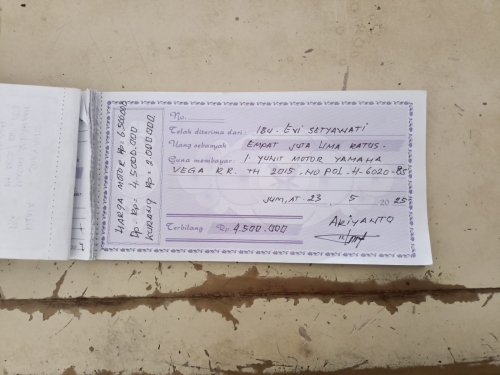 No.
Telah diterima dari : IBU. EVI SETYAWATI
Uang sebanyak : EMPAT JUTA LIMA RATUS.
Guna membayar : 1. YUNIT MOTOR YAMAHA
VEGA RR. TH 2015. NO POL. H-6020-BS
JUM,AT. 23 5 20 25
Terbilang Rp 4.500.000
ARIYANTO
HARGA MOTOR Rp: 6.500.000
Dp. Rp: 4.5000.000
KURANG Rp: 2.000.000